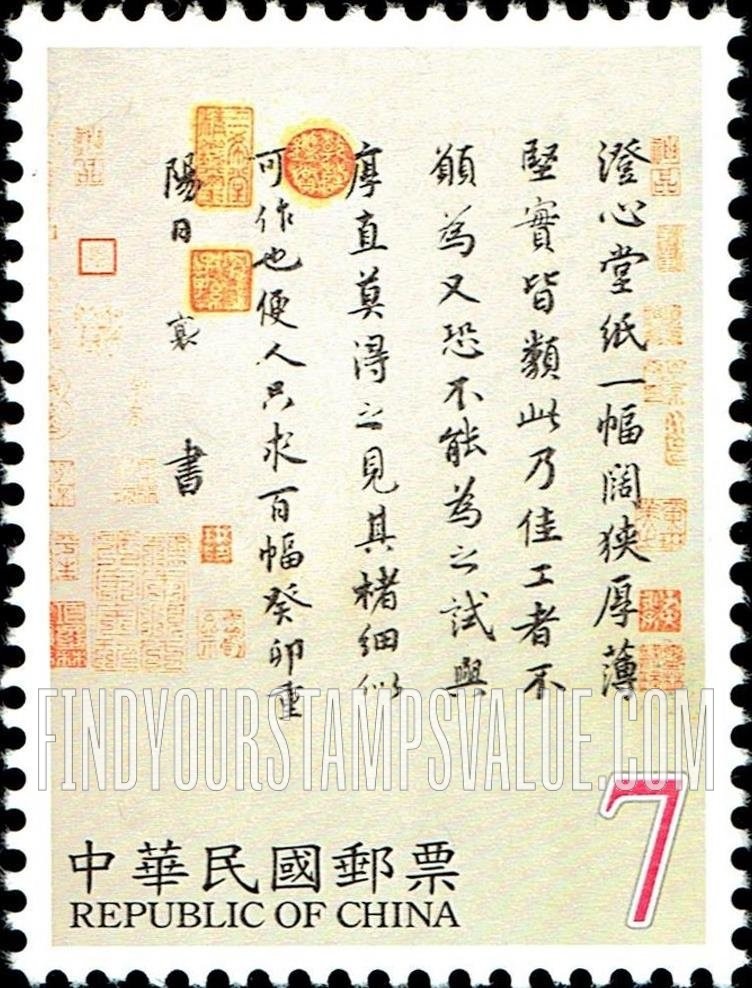 澄心堂紙一幅闊狹厚薄
堅實皆類此乃佳工者不
願為又恐不能為之試與
厚直莫得之見其楮細似
可作也便人只求百幅癸卯重
陽日 襄 書
FINDYOURSTAMPSVALUE.COM
7
中華民國郵票
REPUBLIC OF CHINA